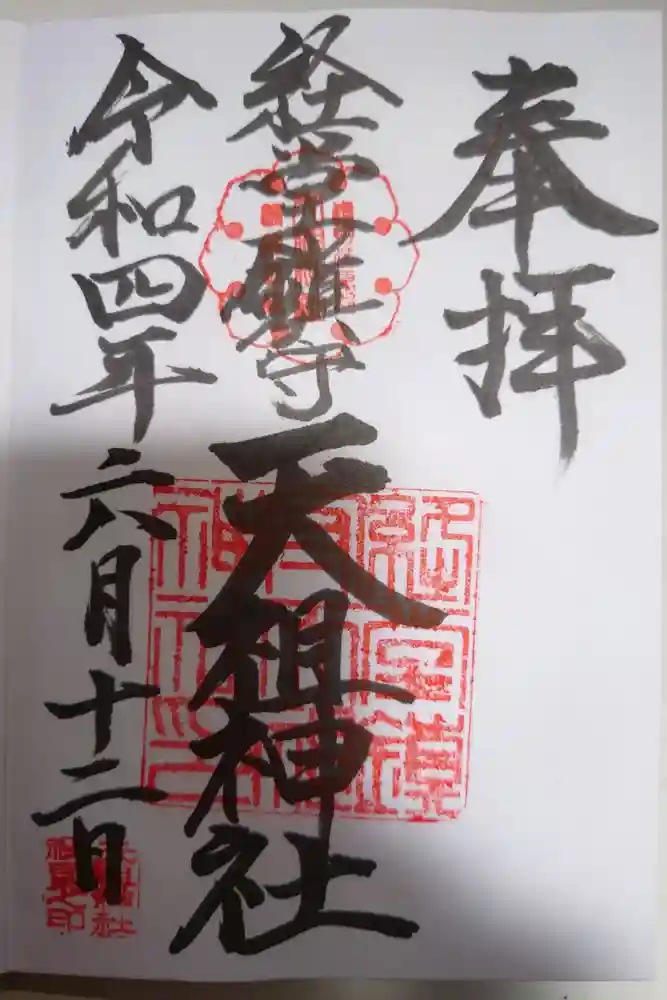 奉拝
経堂鎮守
天祖神社
令和四年六月十二日